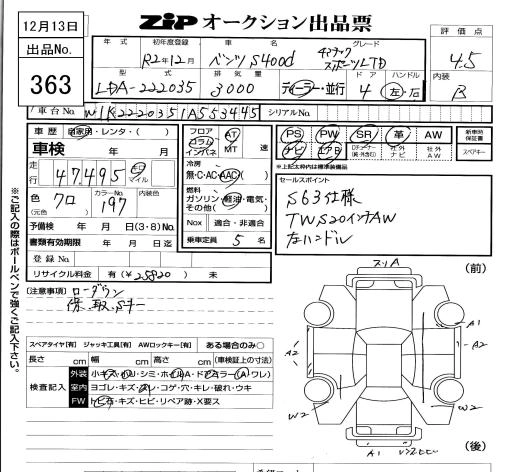 12月13日
ZIP オークション出品票
出品No.
363
年式
初年度登録
R2年12月
車名
ベンツ S400d
グレード
4マチック
スポーツLTD
評価点
4.5
型式
LDA-222035
排気量
3000
ディーラー・並行
ドア
4
ハンドル
左・右
内装
B
車台No.
W1K2220351A553445
シリアルNo.
車歴 自家用・レンタ・( )
車検 年 月
走行
47,495
km
マイル
色
クロ
(元色)
カラーNo.
197
内装色
予備検 年 月 日(3・8)No.
書類有効期限 年 月 日迄
登録No
リサイクル料金 有(¥25820) 未
フロア
コラム
インパネ
AT
MT
速
冷房
無・C・AC・AAC
燃料
ガソリン・軽油・電気・
その他( )
Nox 適合・非適合
乗車定員 5 名
PS PW SR 革 AW
ナビ TV
標準装備品
社外
ナビ
社外
AW
新車時
保証書
スペアキー
セールスポイント
S63仕様
TWS20インチAW
左ハンドル
[注意事項] ローダウン
保、取、Sキー
※ご記入の際はボールペンで強くご記入下さい。
スペアタイヤ[有] ジャッキ工具[有] AWロックキー[有] ある場合のみ○
長さ cm 幅 cm 高さ cm (車検証上の寸法)
検査記入
外装
室内 ヨゴレ・キズ・スレ・コゲ・穴・キレ・破れ・ウキ
FW トビ石・キズ・ヒビ・リペア跡・X要ス
(前)
スリA
A1
A2
A2
W2
W2
A1
(後)